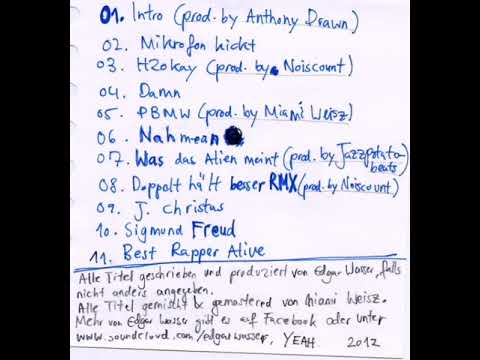 01. Intro (prod. by Anthony Drawn)
02. Mikrofon kickt
03. H2okay (prod. by Noiscount)
04. Damn
05. PBMW (prod. by Miami Weisz)
06. Nahmean
07. Was das Alien meint (prod. by Jazzpotato-
beats)
08. Doppelt hält besser RMX (prod. by Noiscount)
09. J. Christus
10. Sigmund Freud
11. Best Rapper Alive
Alle Titel geschrieben und produziert von Edgar Wasser, falls
nicht anders angegeben.
Alle Titel gemischt & gemasternd von Miami Weisz.
Mehr von Edgar Wasser gibt es auf Facebook oder unter
www.soundcloud.com/edgarwasser, YEAH 2012